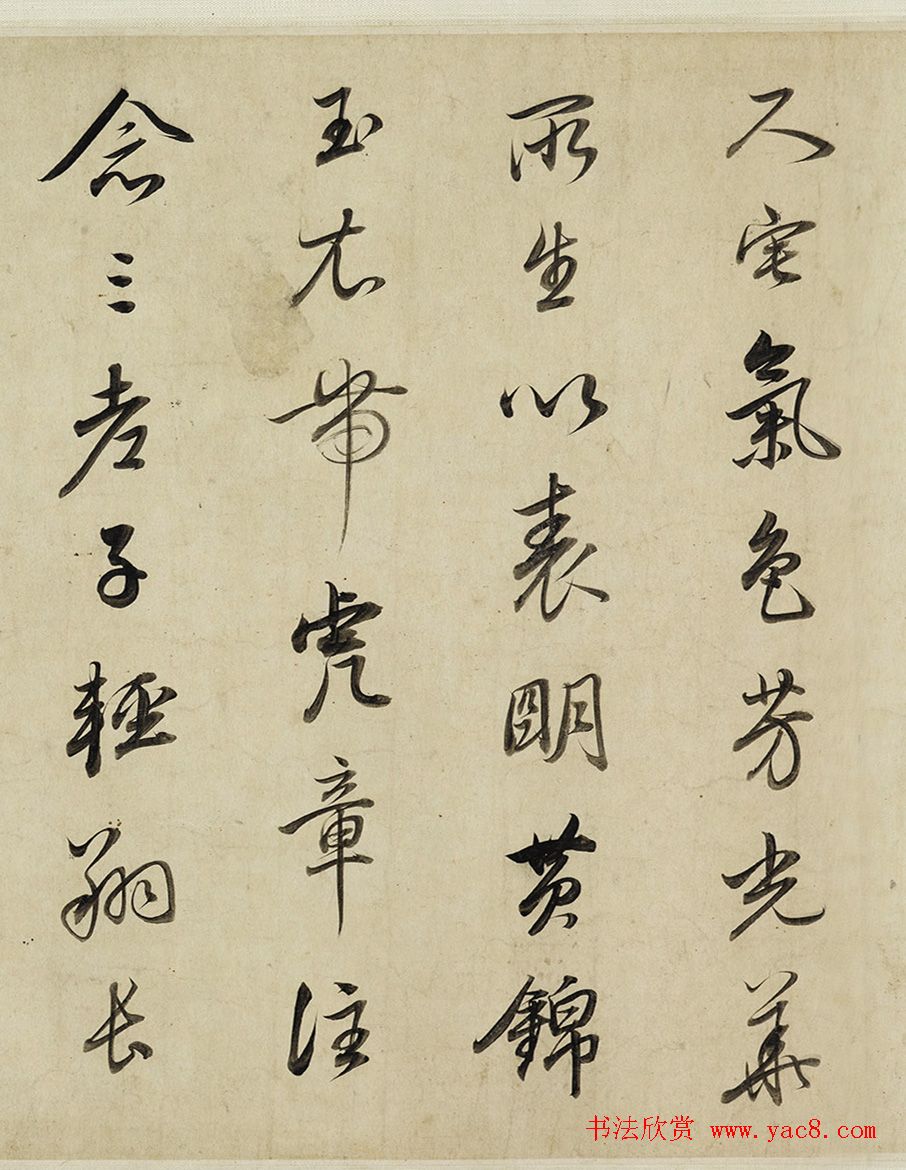 尺宅氣色芳光華
所生以表明黄錦
玉衣帶虎章注
念三老子輕翔長
书法欣赏 www.yac8.com